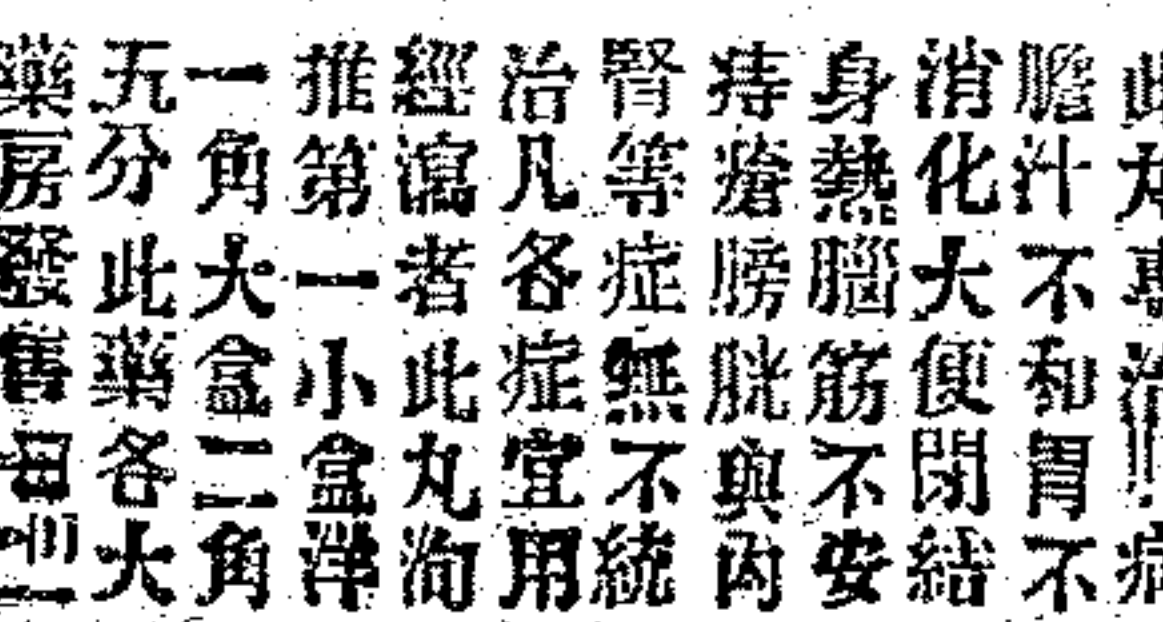 此丸專治
膽汁不和胃不
消化大便閉結
身熱腦筋不安
痔瘡膀胱與內
腎等症無不統
治凡各症宜用
經瀉者此丸洵
推第一小盒洋
一角大盒二角
五分此藥各大
藥房發售